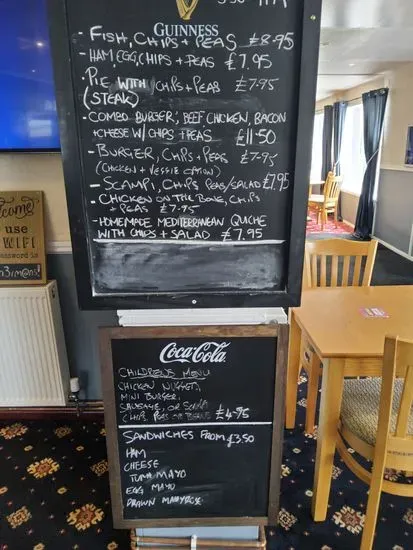 GUINNESS
- FISH, CHIPS + PEAS £8.95
- HAM EGG, CHIPS + PEAS £7.95
- PIE WITH CHIPS + PEAS £7.95
(STEAK)
- COMBO BURGER, BEEF CHICKEN, BACON
+ CHEESE W/ CHIPS + PEAS £11.50
- BURGER, CHIPS + PEAS £7.95
(CHICKEN + VEGGIE OPTION)
- SCAMPI, CHIPS PEAS/SALAD £7.95
- CHICKEN ON THE BONE, CHIPS
+ PEAS £7.95
- HOMEMADE MEDITERRANEAN QUICHE
WITH CHIPS + SALAD £7.95
use
WIFI
Password is
Coca-Cola
CHILDREN'S MENU
CHICKEN NUGGET,
MINI BURGER,
SAUSAGE, OR SCAMPI
CHIPS, PEAS OR BEANS £4.95
SANDWICHES FROM £3.50
HAM
CHEESE
TUNA MAYO
EGG MAYO
PRAWN